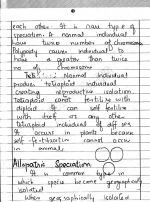 each other. It is rare type of
speciation. A normal individual
have two no number of chromosome
Polyploidy cause individual to
have a greater than twice
no. of chromosome
: Normal individual
produce tetraploid individual
creating reproductive isolation
tetraploid cannot fertilize with
diploid. It can self fer
with itself or any other
tetraploid individual if off
It occurs in plants because
self fertilization cannot occur
in animal.
Allopatric Speciation
It is common type in
which specie become geographically
isolated
when geographically isolated